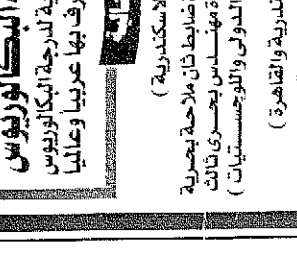 البكالوريوس
ية لدرجة البكالوريوس
رف بها عربيا وعالميا
لاسكندرية )
ضابط ثان ملاحة بحرية
ة مهندس بحرى ثالث
الدولى واللوجستيات )
ندرية والقاهرة )